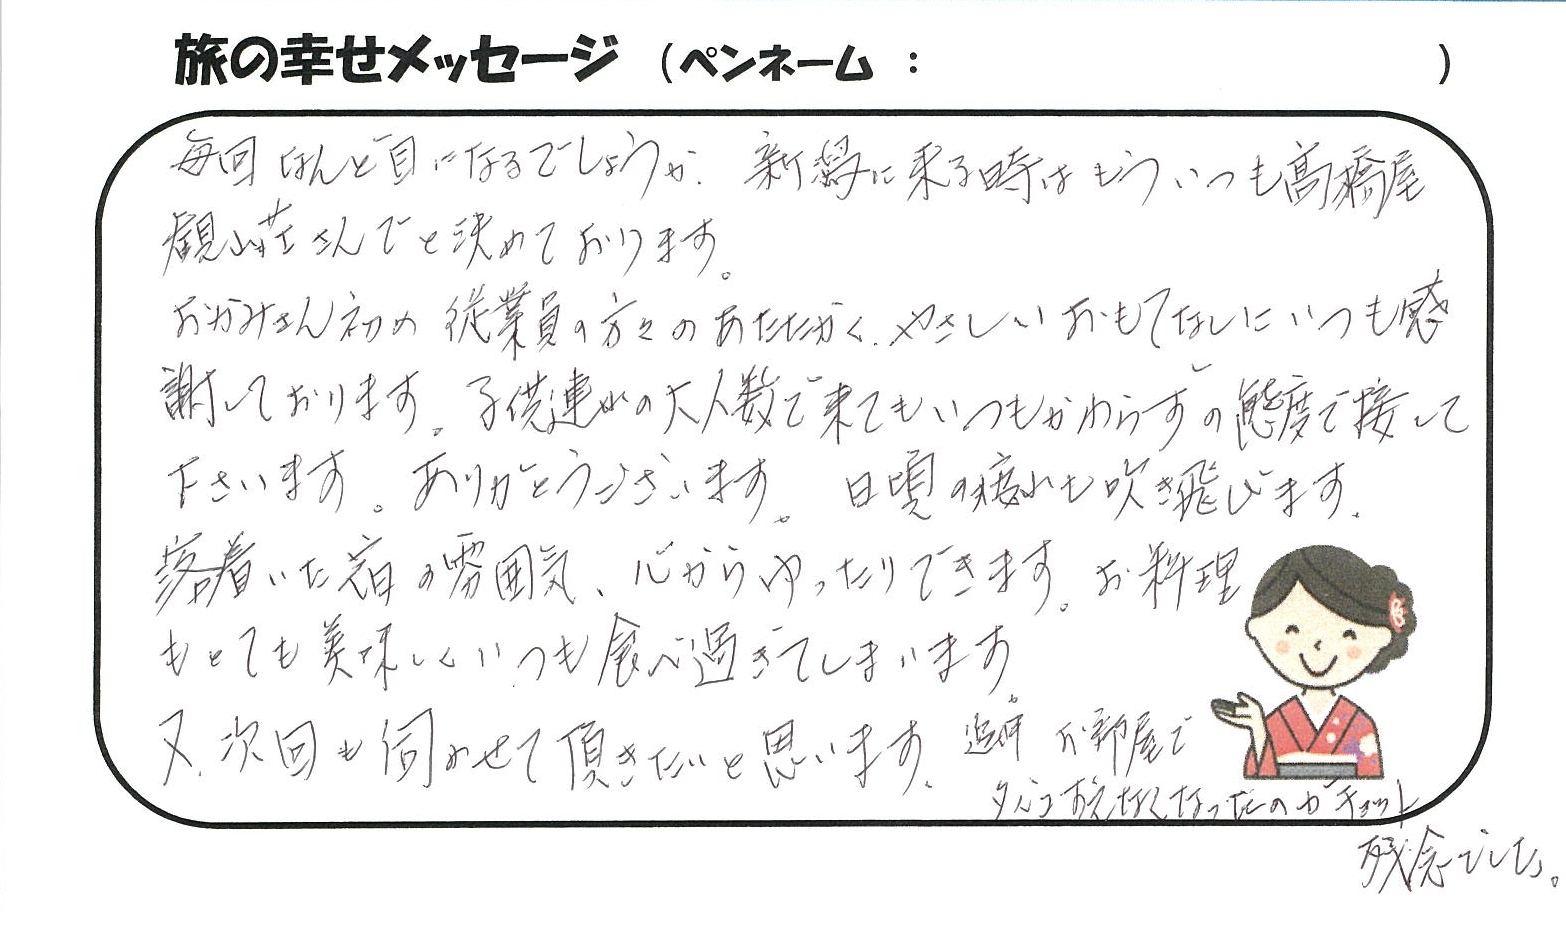 旅の幸せメッセージ (ペンネーム : )
毎回 ほんと目になるでしょうか. 新潟に来る時はもういつも髙橋屋
観山荘さんでと決めております。
おかみさん初め 従業員の方々のあたたかく、やさしいおもてなしにいつも感
謝しております。子供連れの大人数で来てもいつもかわらずの態度で接して
下さいます。ありがとうございます。 日頃の疲れも吹き飛びます.
落着いた宿の雰囲気、心からゆったりできます。お料理
もとても美味しくいつも食べ過ぎてしまいます。
又、次回も伺わせて頂きたいと思います。 追伸 お部屋で
タバコすえなくなったのがチョット
残念でした。